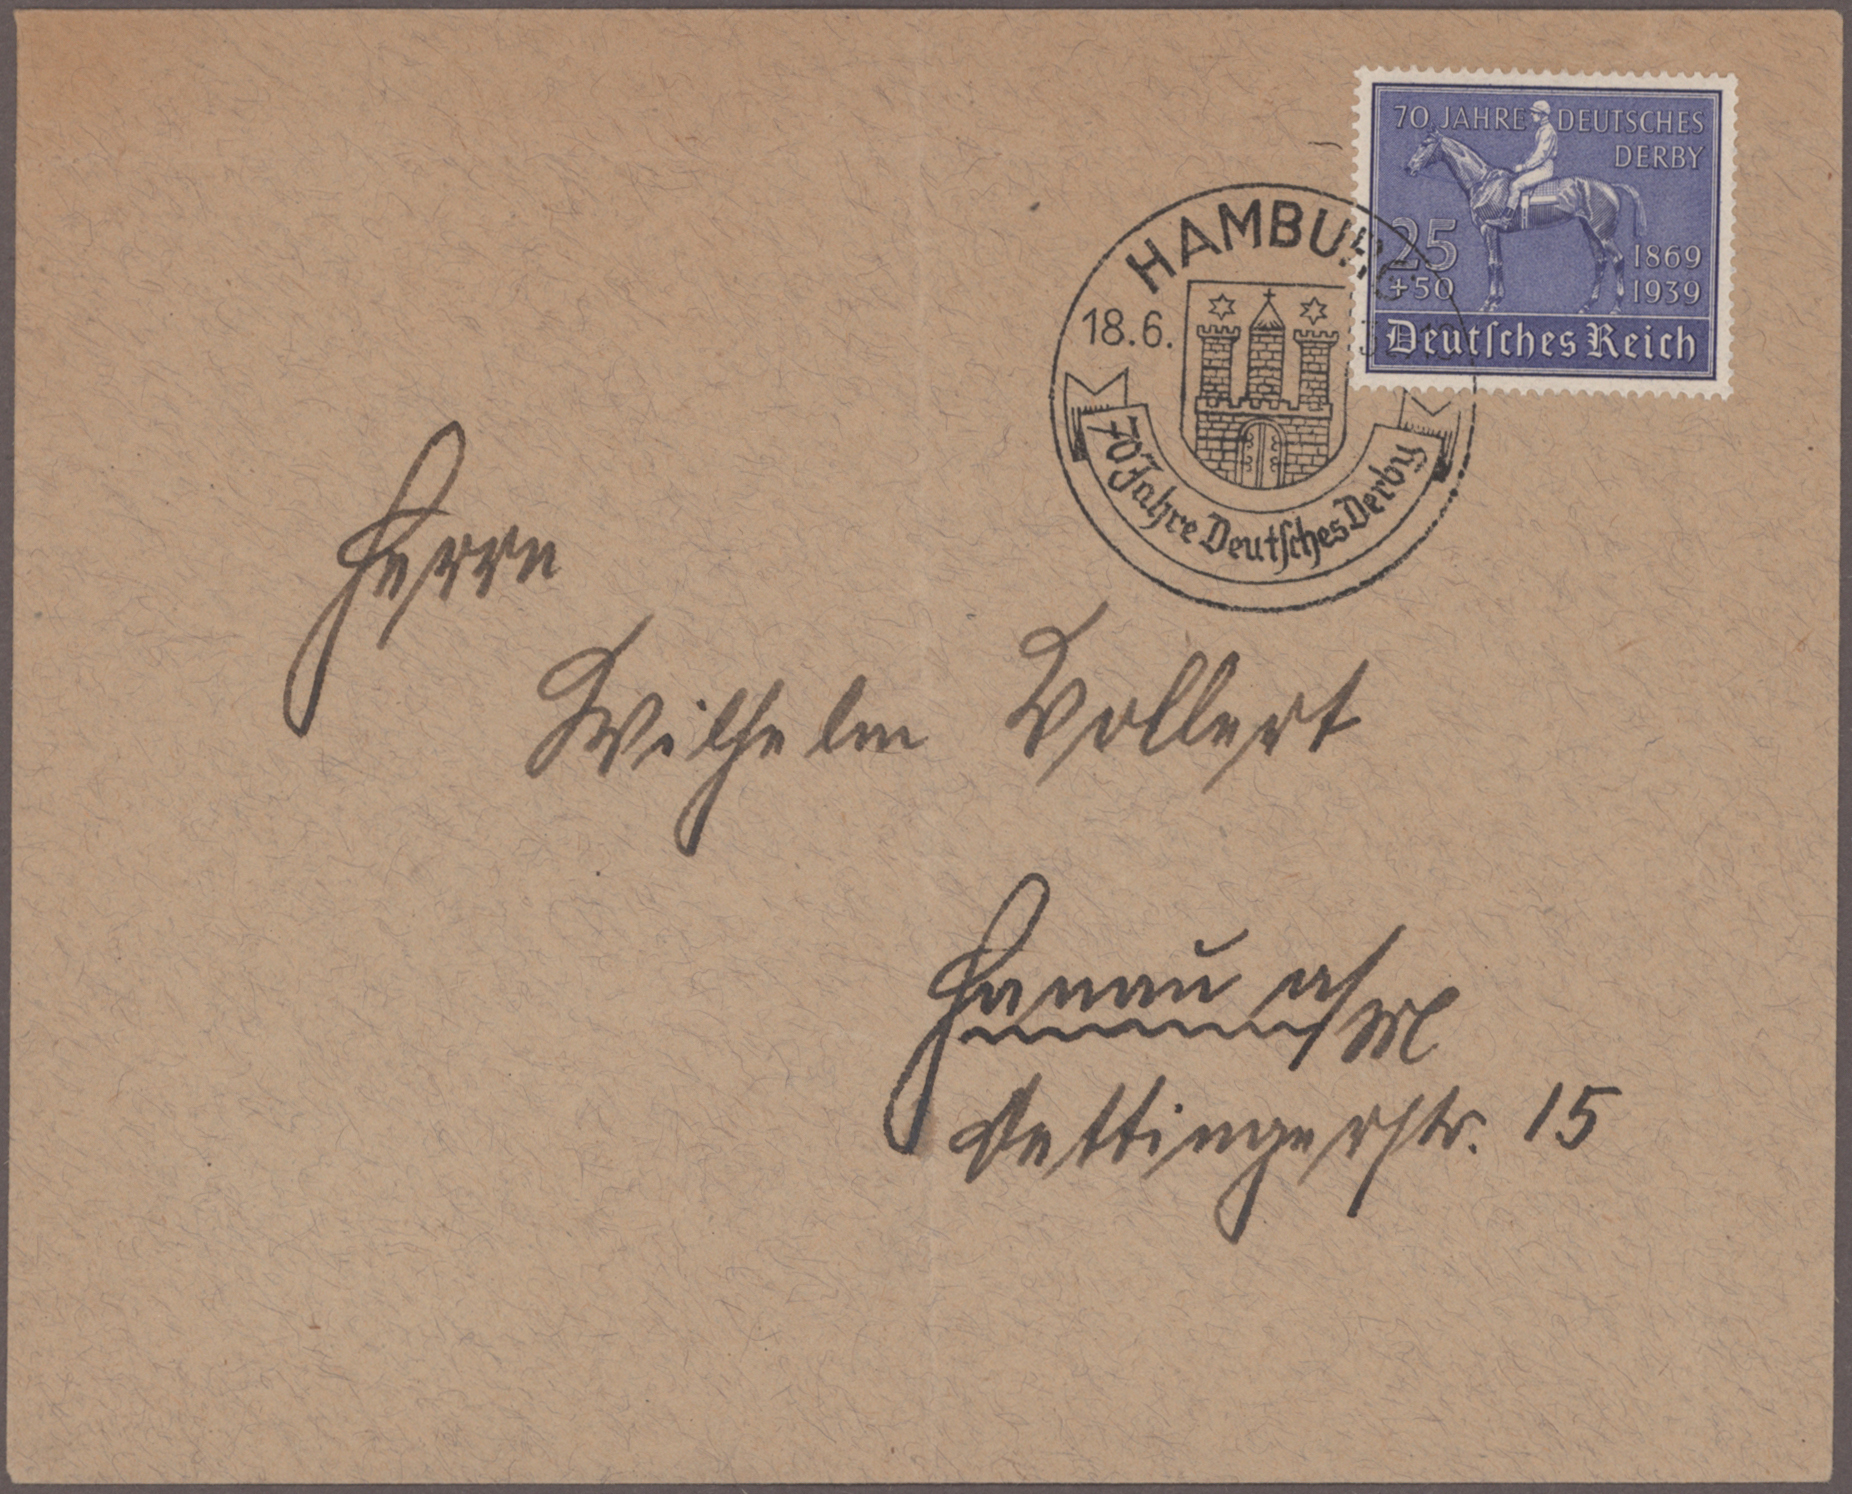 70 JAHRE DEUTSCHES
DERBY
25
+50
1869
1939
Deutſches Reich
HAMBURG
18.6.
70 Jahre Deutſches Derby
Herrn
Wilhelm Vollert
Hanau a/M
15